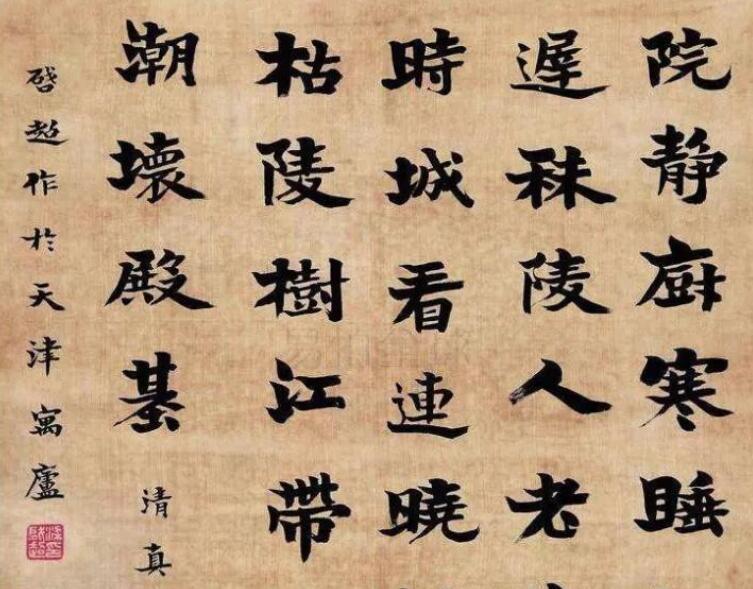 院静廚寒睡
遲秣陵人老
時城看連曉
枯陵樹江帶
潮壞殿基 清真
啓超作於天津寓廬